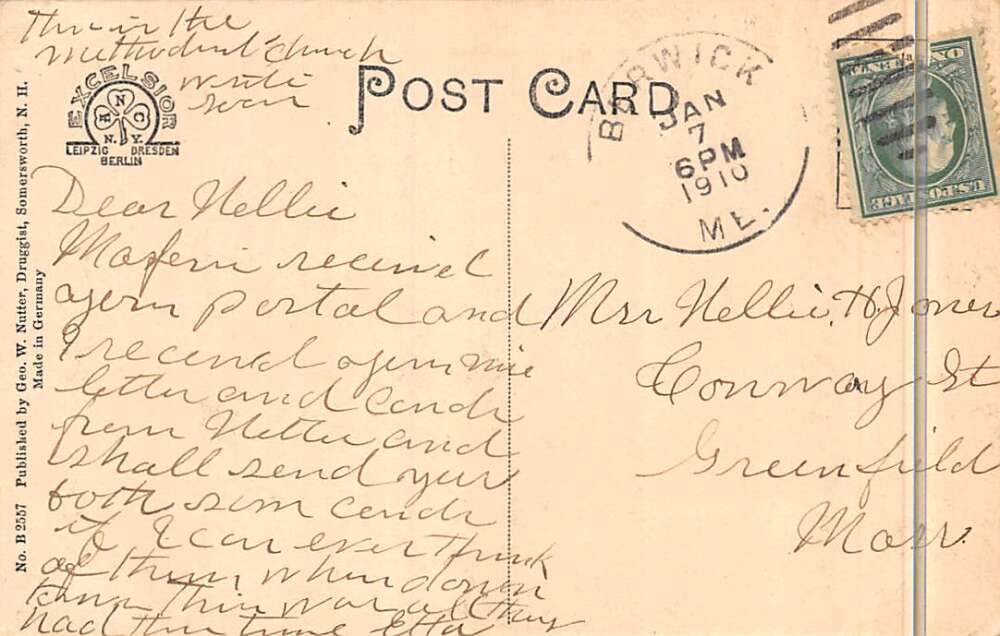 This is the
Methodist church
write
soon
EXCELSIOR
N
H C
N. Y.
LEIPZIG DRESDEN
BERLIN
POST CARD
BERWICK
JAN
7
6 PM
1910
ME.
ONE CENT
U.S. POSTAGE
No. B 2557 Published by Geo. W. Nutter, Druggist, Somersworth, N. H.
Made in Germany
Dear Nellie
received
postal and
I received nice
letter and cards
from Nettie and
shall send you
both some cards
if I can ever think
of them when down
town this was all they
had this time Etta
Mrs Nellie H. Jones
Conway St
Greenfield
Mass